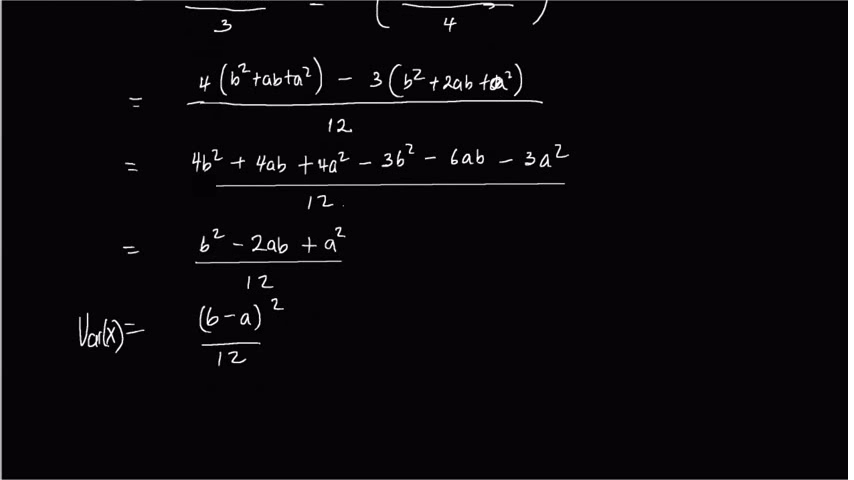 3 - ( 4 )
= 4(b²+ab+a²) - 3(b²+2ab+a²)
12
= 4b² + 4ab + 4a² - 3b² - 6ab - 3a²
12.
= b² - 2ab + a²
12
Var(x)= (b-a)²
12